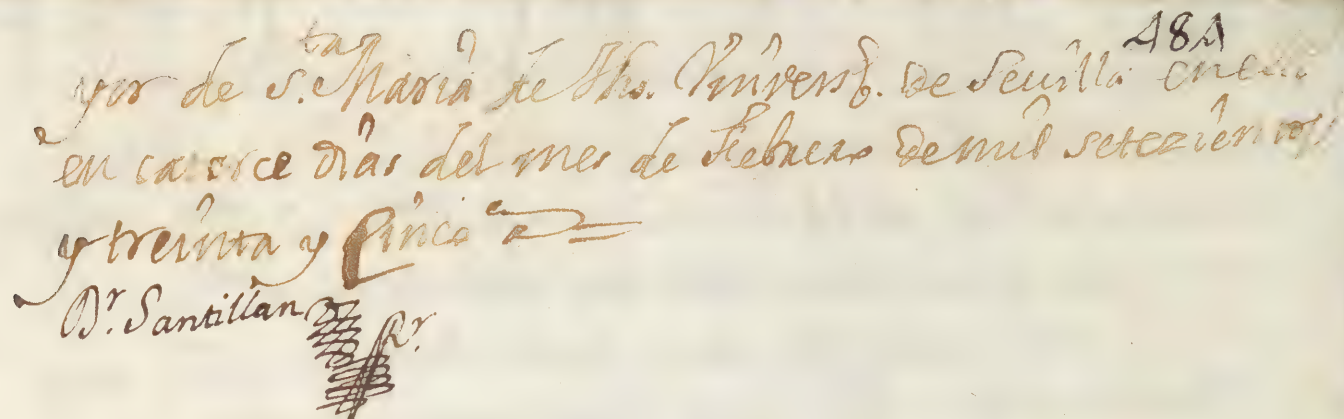 481
yor de S.ta Maria de Jhs. Vnivers.d de Sevilla en ella
en catorce dias del mes de Febrero de mil setezientos
y treinta y Cinco
Dr. Santillan
Rr.